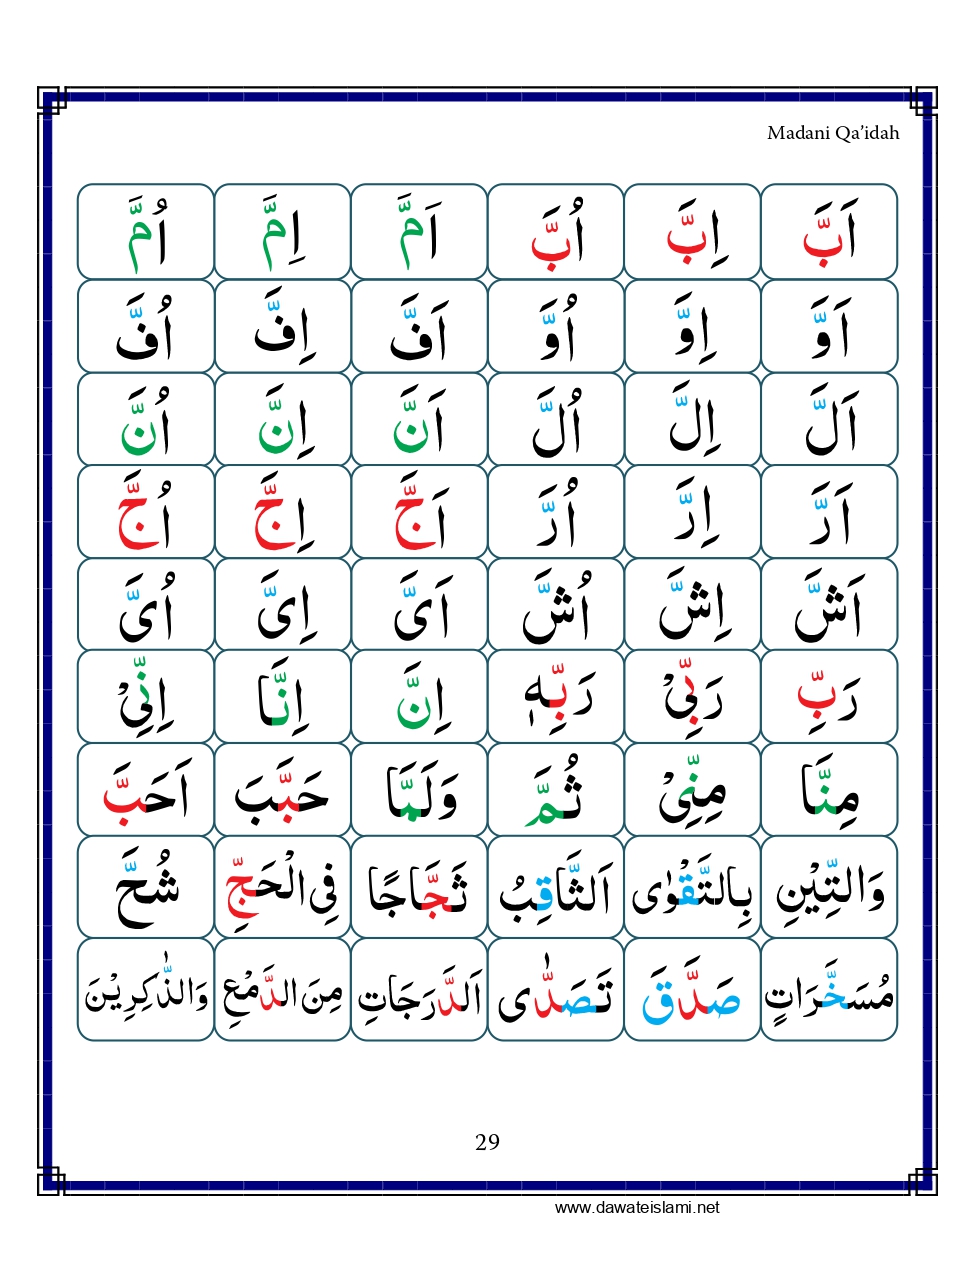 Madani Qa’idah
اَبَّ اِبَّ اُبَّ اَمَّ اِمَّ اُمَّ
اَوَّ اِوَّ اُوَّ اَفَّ اِفَّ اُفَّ
اَلَّ اِلَّ اُلَّ اَنَّ اِنَّ اُنَّ
اَرَّ اِرَّ اُرَّ اَجَّ اِجَّ اُجَّ
اَشَّ اِشَّ اُشَّ اَیَّ اِیَّ اُیَّ
رَبِّ رَبِّیْ رَبِّہٖ اِنَّ اِنَّا اِنِّیْ
مِنَّا مِنِّیْ ثُمَّ وَلَمَّا حَبَّبَ اَحَبَّ
وَالتِّیْنِ بِالتَّقْوٰی اَلثَّاقِبُ ثَجَّاجًا فِی الْحَجِّ شُحَّ
مُسَخَّرَاتٍ صَدَّقَ تَصَدّٰی اَلدَّرَجَاتِ مِنَ الدَّمْعِ وَالذّٰکِرِیْنَ
29
www.dawateislami.net